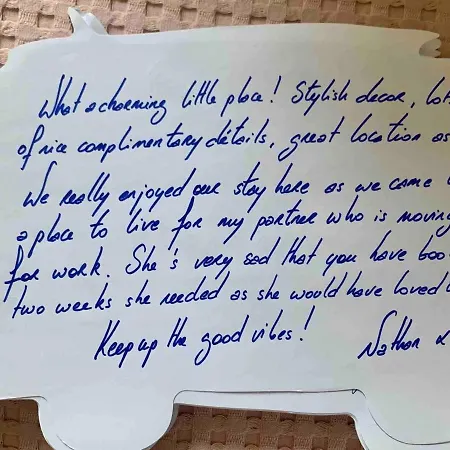 What a charming little place! Stylish decor, lot
of nice complimentary détails, great location as
We really enjoyed our stay here as we came
a place to live for my partner who is moving
for work. She's very sad that you have boo
two weeks she needed as she would have loved
Keep up the good vibes!
Nathan &